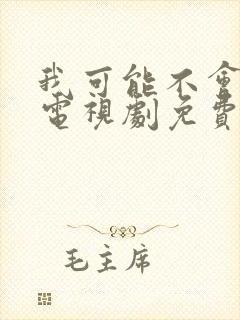 我可能不會
電視劇免費
毛主席